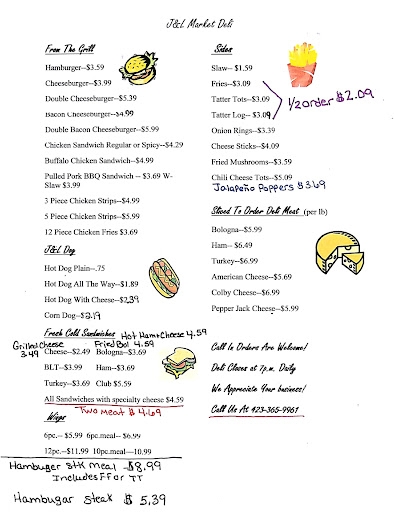 J&L Market Deli
From The Grill
Hamburger--$3.59
Cheeseburger--$3.99
Double Cheeseburger--$5.39
Bacon Cheeseburger--$4.99
Double Bacon Cheeseburger--$5.99
Chicken Sandwich Regular or Spicy--$4.29
Buffalo Chicken Sandwich--$4.99
Pulled Pork BBQ Sandwich -- $3.69 W-
Slaw $3.99
3 Piece Chicken Strips--$4.99
5 Piece Chicken Strips--$5.99
12 Piece Chicken Fries $3.69
J&L Dog
Hot Dog Plain--.75
Hot Dog All The Way--$1.89
Hot Dog With Cheese--$2.39
Corn Dog--$2.19
Fresh Cold Sandwiches Hot Ham+Cheese 4.59
Grilled Cheese 3.49
Fried Bol 4.59
Cheese--$2.49 Bologna--$3.69
BLT--$3.99 Ham--$3.69
Turkey--$3.69 Club $5.59
All Sandwiches with specialty cheese $4.59
Two Meat $4.69
Wings
6pc.-- $5.99 6pc.meal-- $6.99
12pc.--$11.99 10pc.meal—10.99
Hambuger Stk meal $8.99
Includes FF or TT
Hambugar Steak $ 5.39
Sides
Slaw-- $1.59
Fries--$3.09
Tatter Tots--$3.09
Tatter Log-- $3.09
1/2 order $2.09
Onion Rings--$3.39
Cheese Sticks--$4.09
Fried Mushrooms--$3.59
Chili Cheese Tots--$5.09
Jalapeño Poppers $3.69
Sliced To Order Deli Meat (per lb)
Bologna--$5.99
Ham-- $6.49
Turkey--$6.99
American Cheese--$5.69
Colby Cheese--$6.99
Pepper Jack Cheese--$5.99
Call In Orders Are Welcome!
Deli Closes at 7p.m. Daily
We Appreciate Your business!
Call Us At 423-365-9961